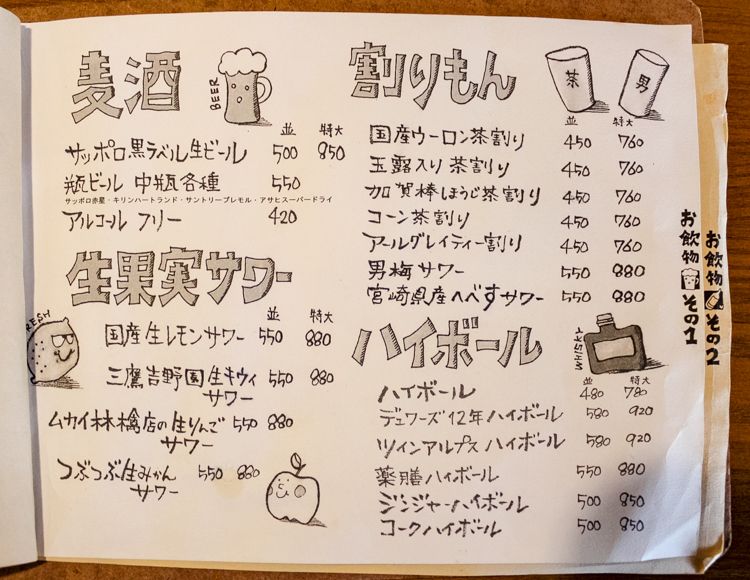 麦酒
BEER
並 特大
サッポロ黒ラベル生ビール 500 850
瓶ビール 中瓶各種 550
サッポロ赤星・キリンハートランド・サントリープレモル・アサヒスーパードライ
アルコール フリー 420
生果実サワー
並 特大
FRESH
国産生レモンサワー 550 880
三鷹吉野園生キウィ 550 880
サワー
ムカイ林檎店の生りんご 550 880
サワー
つぶつぶ生みかん 550 880
サワー
割りもん
茶
男
並 特大
国産ウーロン茶割り 450 760
玉露入り茶割り 450 760
加賀棒ほうじ茶割り 450 760
コーン茶割り 450 760
アールグレイティー割り 450 760
男梅サワー 550 880
宮崎県産へべすサワー 550 880
ハイボール
WHISKY
並 特大
ハイボール 480 780
デュワーズ12年ハイボール 580 920
ツインアルプス ハイボール 580 920
薬膳ハイボール 550 880
ジンジャーハイボール 500 850
コークハイボール 500 850
お飲物 その1
お飲物 その2